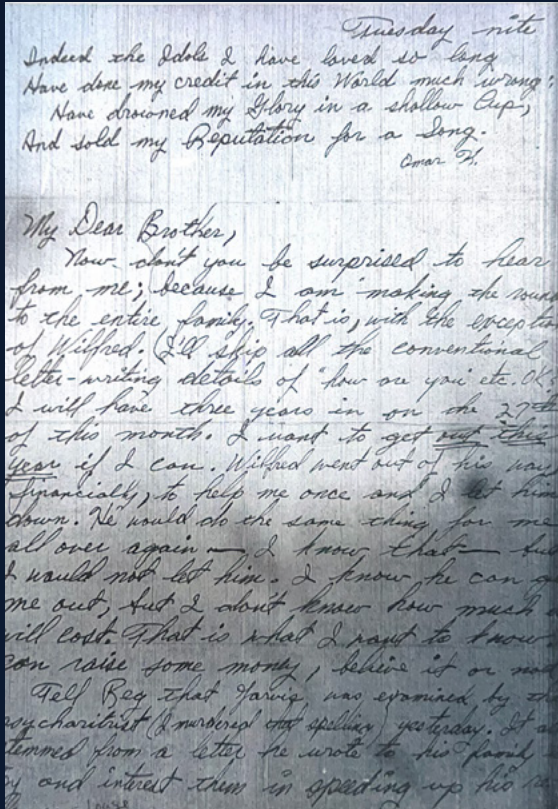 Tuesday nite
Indeed the Idols I have loved so long
Have done my credit in this World much wrong
Have drowned my Glory in a shallow Cup,
And sold my Reputation for a Song.
Omar K.
My Dear Brother,
Now don't you be surprised to hear
from me; because I am making the roun
to the entire family. That is, with the exceptio
of Wilfred. (I'll skip all the conventional
letter-writing details of "how are you etc. OK.
I will have three years in on the 27th
of this month. I want to get out this
year if I can. Wilfred went out of his way
financially, to help me once and I let him
down. He would do the same thing for me
all over again — I know that — but
I would not let him. I know he can g
me out, but I don't know how much
will cost. That is what I want to know
can raise some money, believe it or not
Tell Reg that Jarvis was examined by th
psycharitrist (I murdered that spelling) yesterday. It a
stemmed from a letter he wrote to his family
and interest them in speeding up his